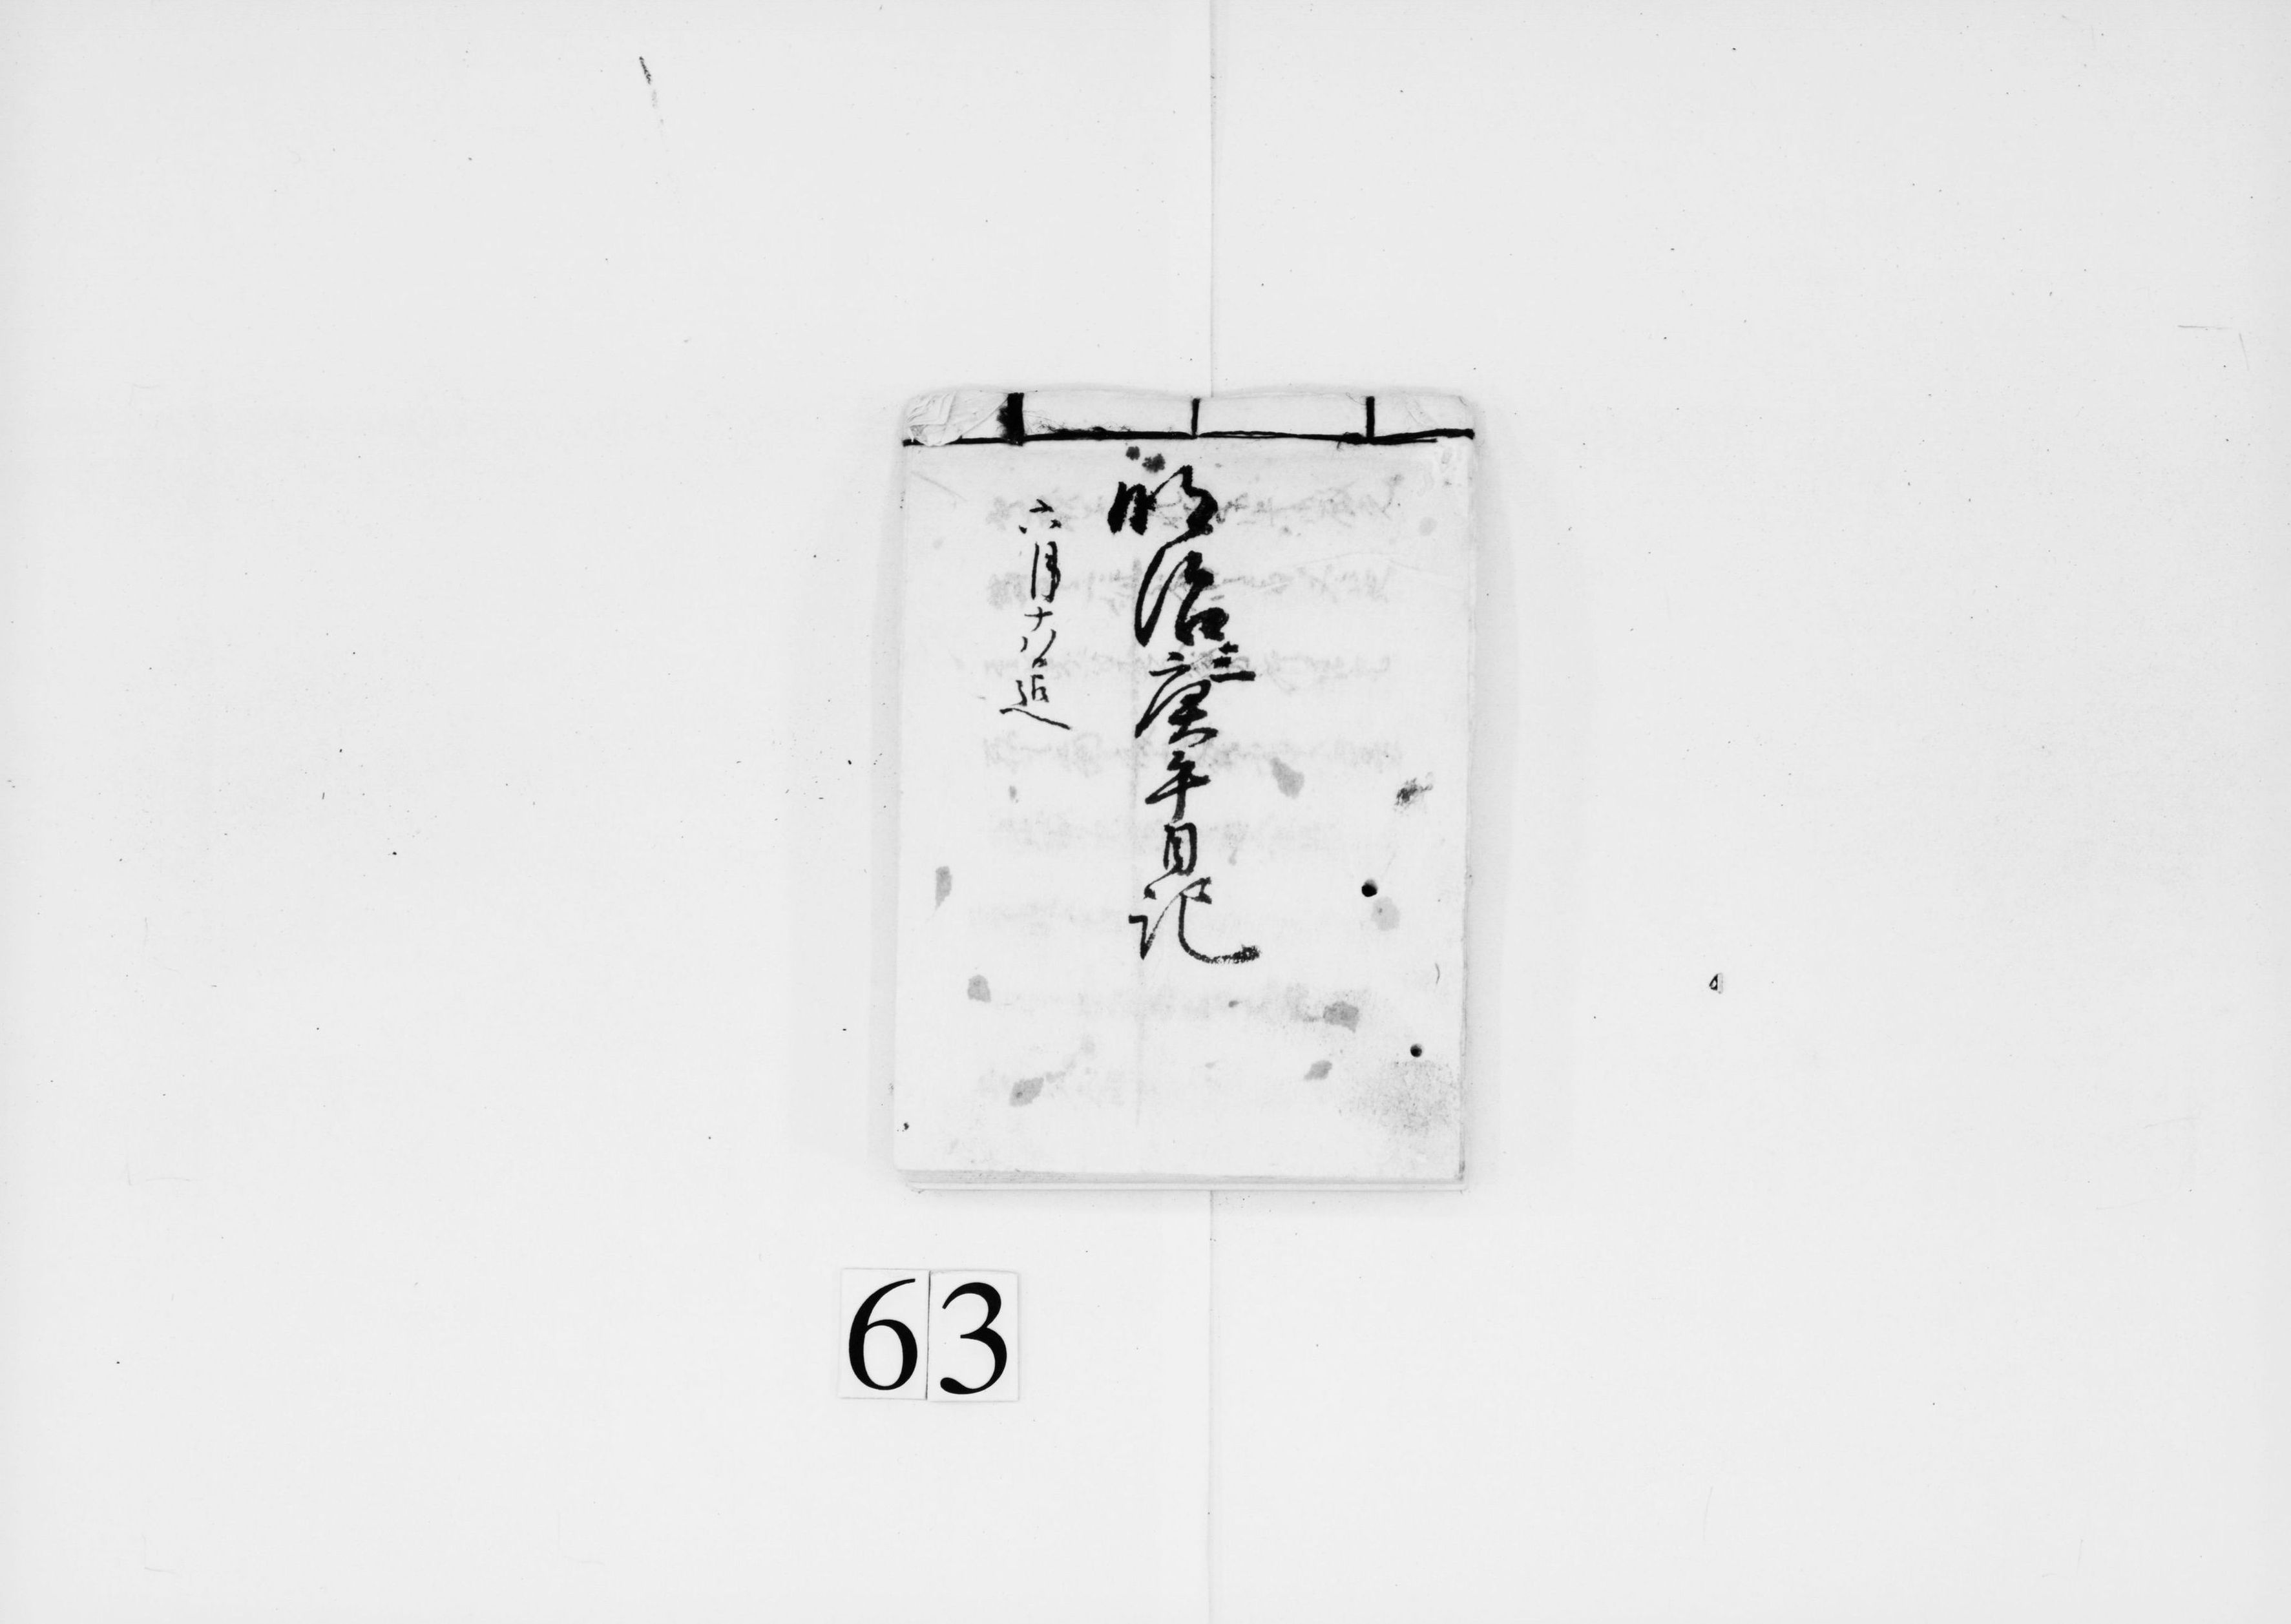 明治三庚午日記
六月十八迄
63